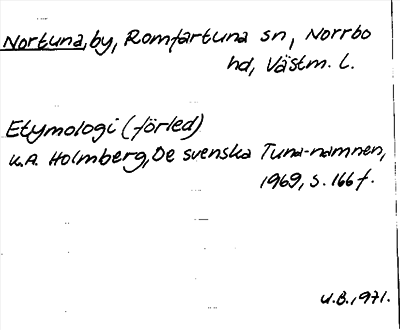 Nortuna, by, Romfartuna sn, Norrbo
hd, Västm. l.
Etymologi (förled)
K.A. Holmberg, De svenska Tuna-namnen,
1969, s. 166 f.
U.B. 1971.